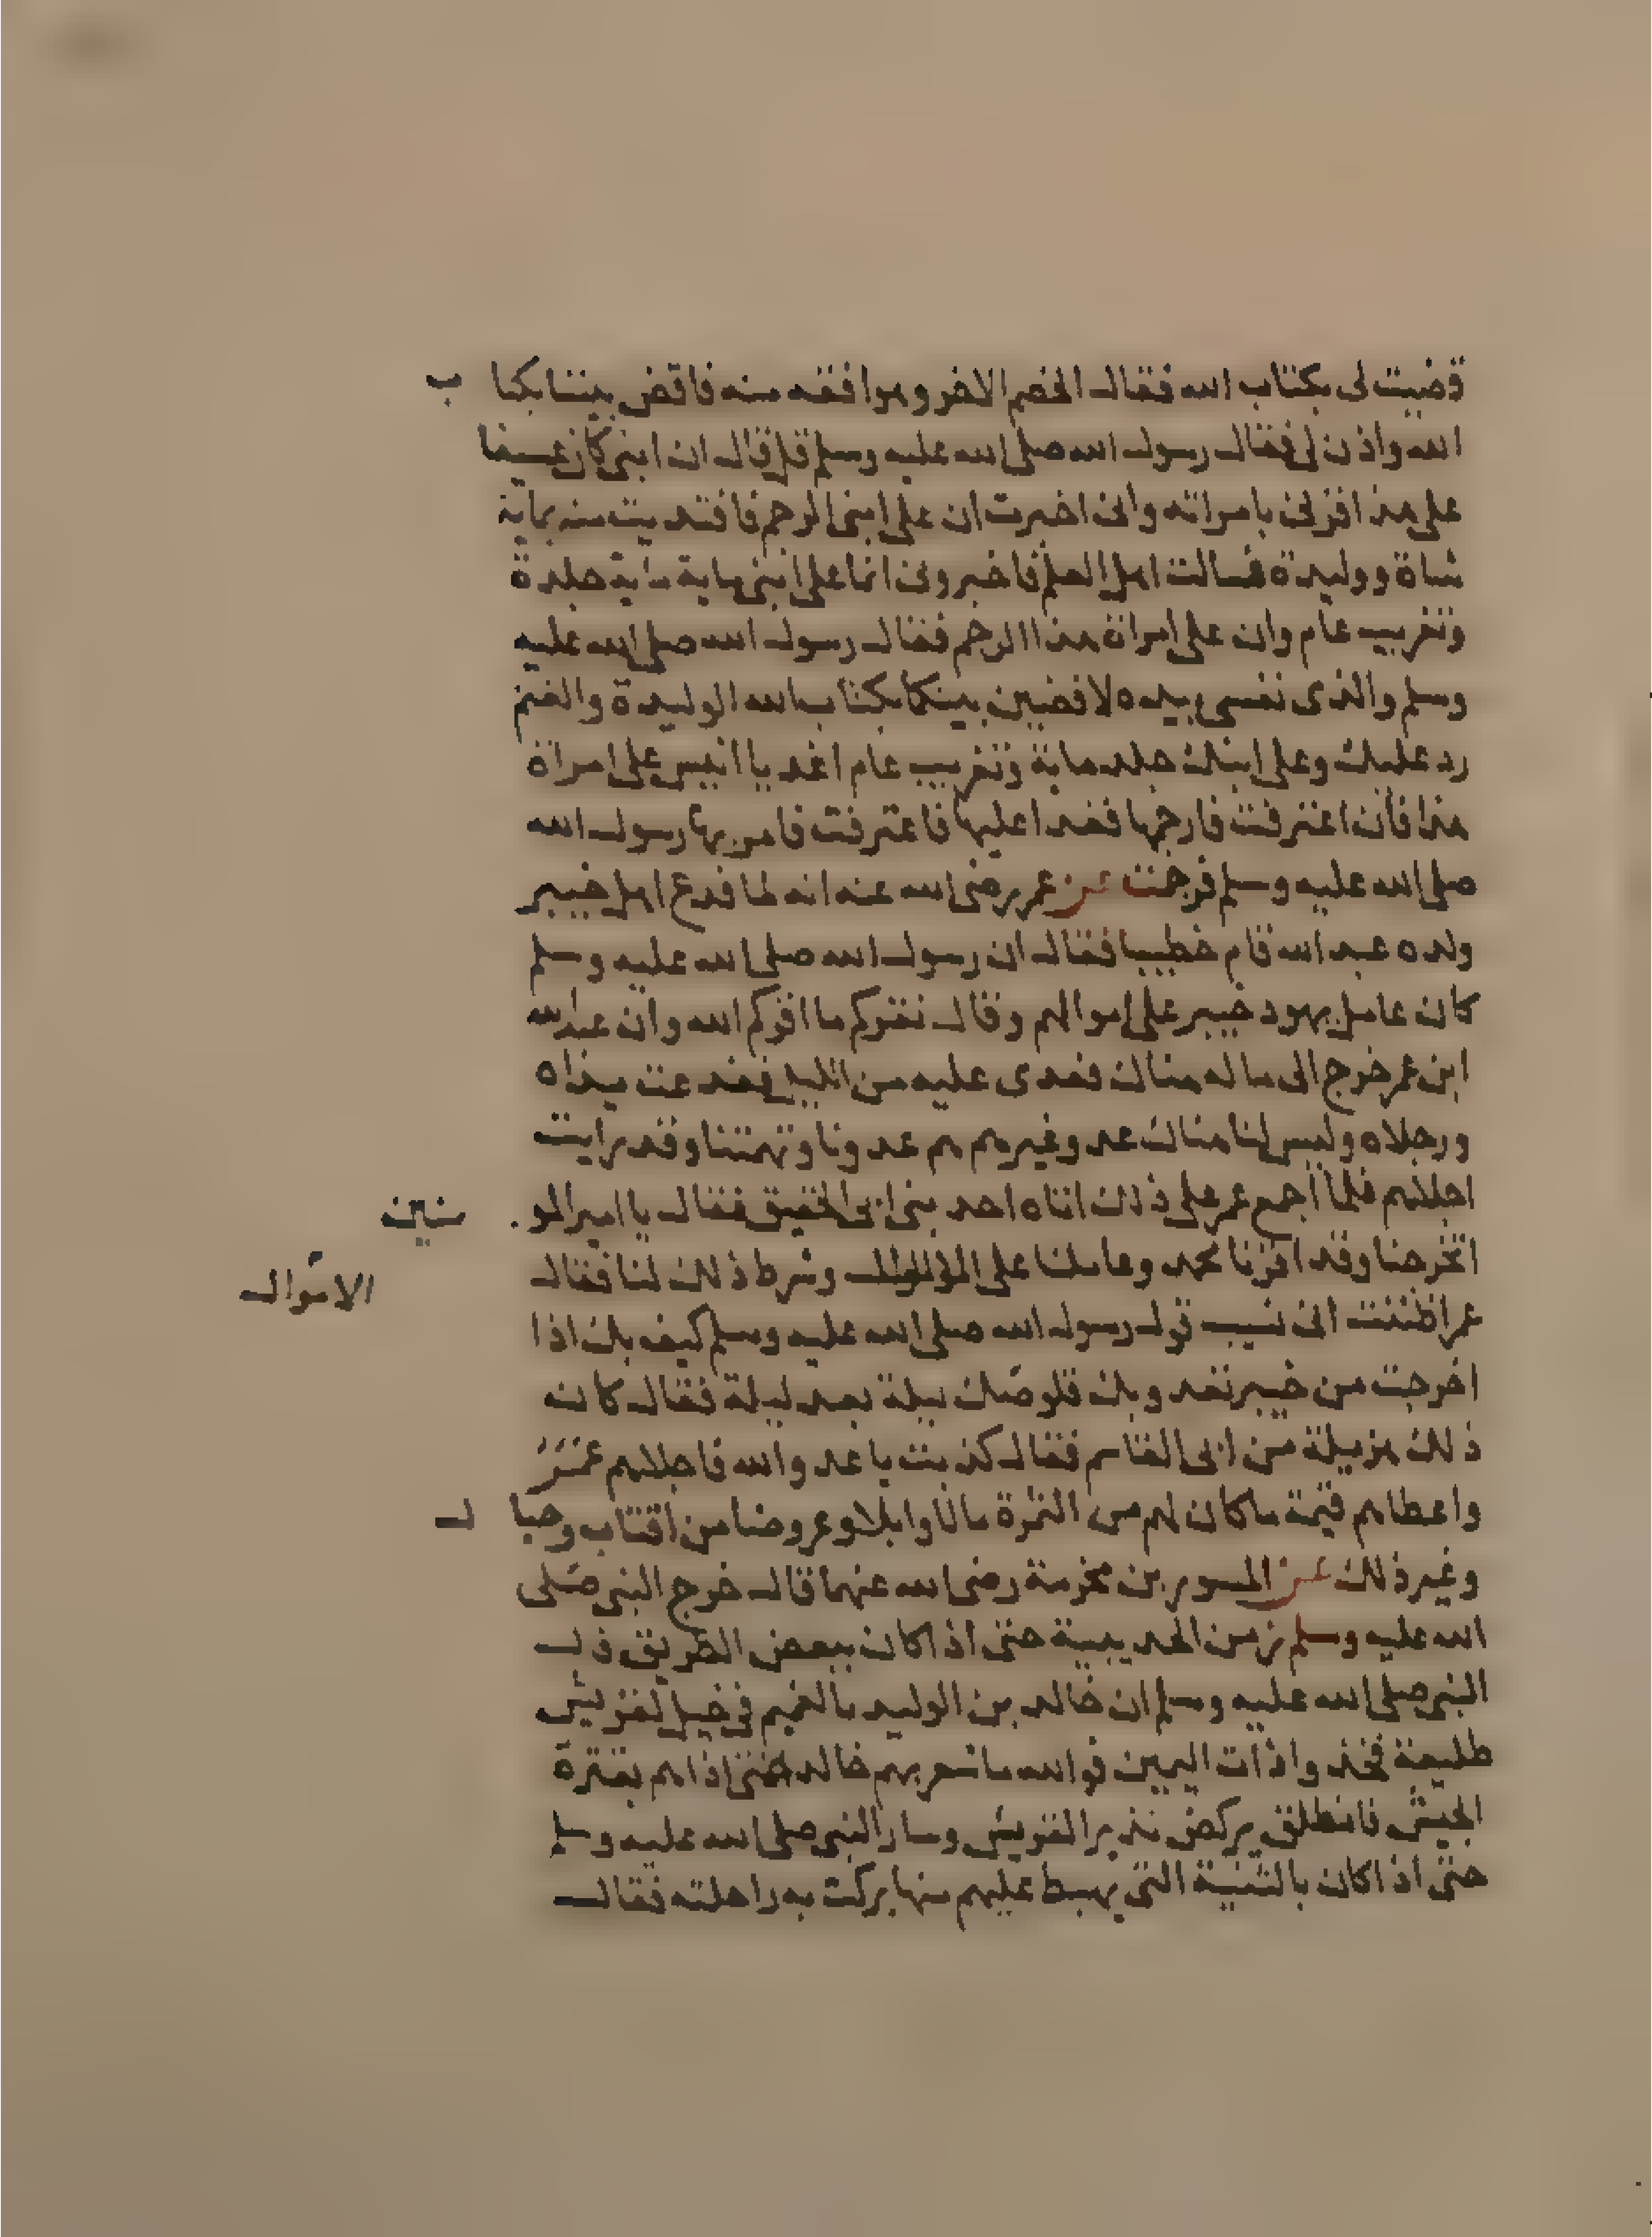 قضيت لى بكتاب الله فقال الخصم الاخر وهوا فقه منه فاقض بيننا بكتا ب
الله واذن لى فقال رسول الله صلى الله عليه وسلم قل قال ان ابنى كان عسيفا
على هذا فزنى بامراته وانى اخبرت ان على ابنى الرجم فافتديت منه بماية
شاة ووليدة فسالت اهل العلم فاخبرونى انما على ابنى ماية جلدة
وتغريب عام وان على امراة هذا الرجم فقال رسول الله صلى الله عليه
وسلم والذى نفسى بيده لاقضين بينكما بكتاب الله الوليدة والغنم
رد عليك وعلى ابنك جلد ماية وتغريب عام اغد يا انيس على امراة
هذا فان اعترفت فارجمها فغدا عليها فاعترفت فامر بها رسول الله
صلى الله عليه وسلم فرجمت عن عمر رضى الله عنه انه لما فدع اهل خيبر
ولده عبد الله قام خطيبا فقال ان رسول الله صلى الله عليه وسلم
كان عامل يهود خيبر على اموالهم وقال نقركم ما اقركم الله وان عبد الله
ابن عمر خرج الى ماله هناك فعدى عليه من الليل ففدعت يداه
ورجلاه وليس لنا هناك عدو غيرهم هم عدونا وتهمتنا وقد رايت
اجلاهم فلما اجمع عمر على ذلك اتاه احد بنى ابى الحقيق فقال يا امير المو . منين
اتخرجنا وقد اقرنا محمد وعاملنا على وشرط ذلك لنا فقال
الاموال
عمر اظننت انى نسيت قول رسول الله صلى الله عليه وسلم كيف بك اذا
اخرجت من خيبر تعد وبك قلوصك ليلة بعد ليلة فقال كانت
ذلك هزيلة من ابى القاسم فقال كذبت يا عدو الله فاجلاهم عمر
واعطاهم قيمة ما كان لهم من الثمرة مالا وابلا وعروضا من اقتاب وحبا ل
وغير ذلك عن المسور بن مخرمة رضى الله عنهما قال خرج النبى صلى
الله عليه وسلم زمن الحديبية حتى اذا كان ببعض الطريق قال
النبى صلى الله عليه وسلم ان خالد بن الوليد بالغميم فى خيل لقريش
طليعة فخذوا ذات اليمين فوالله ما شعر بهم خالد حتى اذا هم بقترة
الجيش فانطلق يركض نذيرا لقريش وسار النبى صلى الله عليه وسلم
حتى اذا كان بالثنية التى يهبط عليهم منها بركت به راحلته فقال